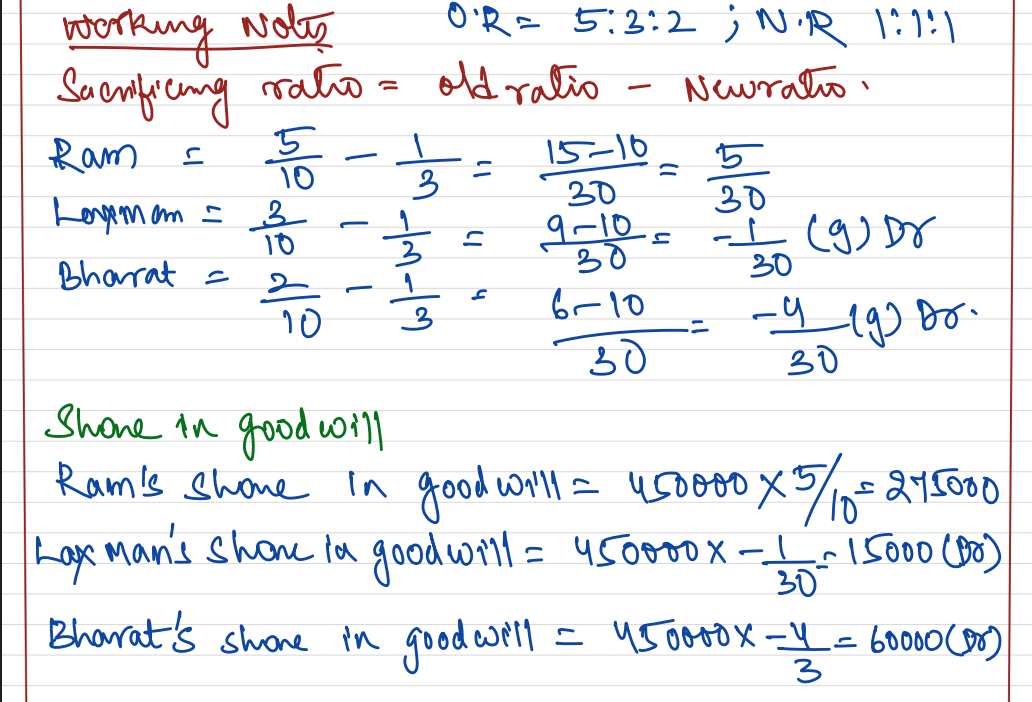 Working Notes O.R = 5:3:2 ; N.R 1:1:1
Sacrificing ratio = old ratio - New ratio.
Ram = 5/10 - 1/3 = 15-10/30 = 5/30
Laxman = 3/10 - 1/3 = 9-10/30 = -1/30 (g) Dr
Bharat = 2/10 - 1/3 = 6-10/30 = -4/30 (g) Dr.
Share in goodwill
Ram's share in goodwill = 450000 x 5/10 = 275000
Laxman's share in goodwill = 450000 x -1/30 = 15000 (Dr)
Bharat's share in goodwill = 450000 x -4/3 = 60000 (Dr)